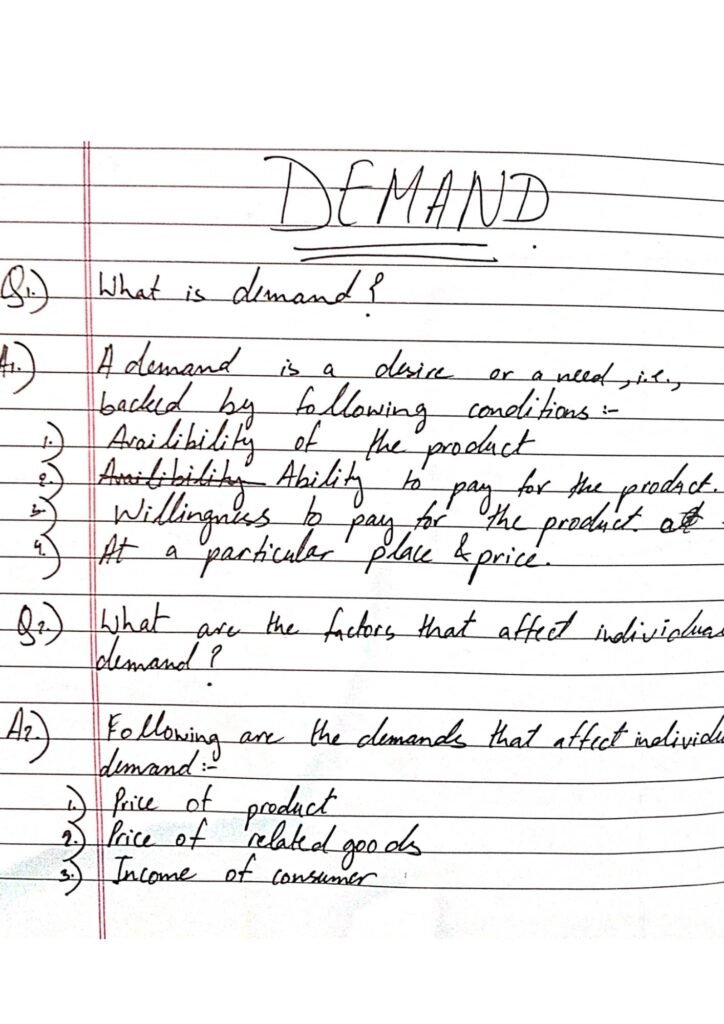 DEMAND.
Q1.) What is demand?
A1.) A demand is a desire or a need, i.e.,
backed by following conditions:-
1.) Availibility of the product
2.) Availibility Ability to pay for the product.
3.) Willingness to pay for the product. at
4.) At a particular place & price.
Q2.) What are the factors that affect individual
demand?
A2.) Following are the demands that affect individu
demand:-
1.) Price of product
2.) Price of related goods
3.) Income of consumer